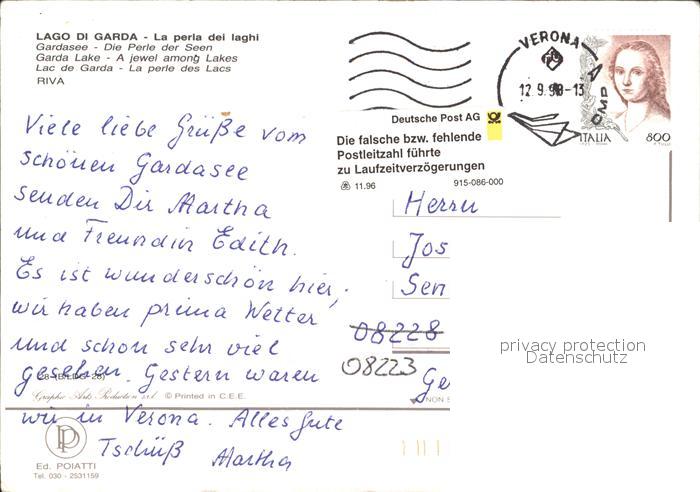 LAGO DI GARDA - La perla dei laghi
Gardasee - Die Perle der Seen
Garda Lake - A jewel among Lakes
Lac de Garda - La perle des Lacs
RIVA
VERONA
12.9.98-13
CMP
ITALIA
800
Deutsche Post AG
Die falsche bzw. fehlende
Postleitzahl führte
zu Laufzeitverzögerungen
11.96 915-086-000
Viele liebe Grüße vom
schönen Gardasee
senden Dir Martha
und Freundin Edith.
Es ist wunderschön hier,
wir haben prima Wetter
und schon sehr viel
gesehen. Gestern waren
wir in Verona. Alles Gute
Tschüß Martha
Herrn
Jos
Sen
08228
08223
Ge
privacy protection
Datenschutz
Graphic Arts Production s.r.l. © Printed in C.E.E.
NON S
Ed. POIATTI
Tel. 030 - 2531159